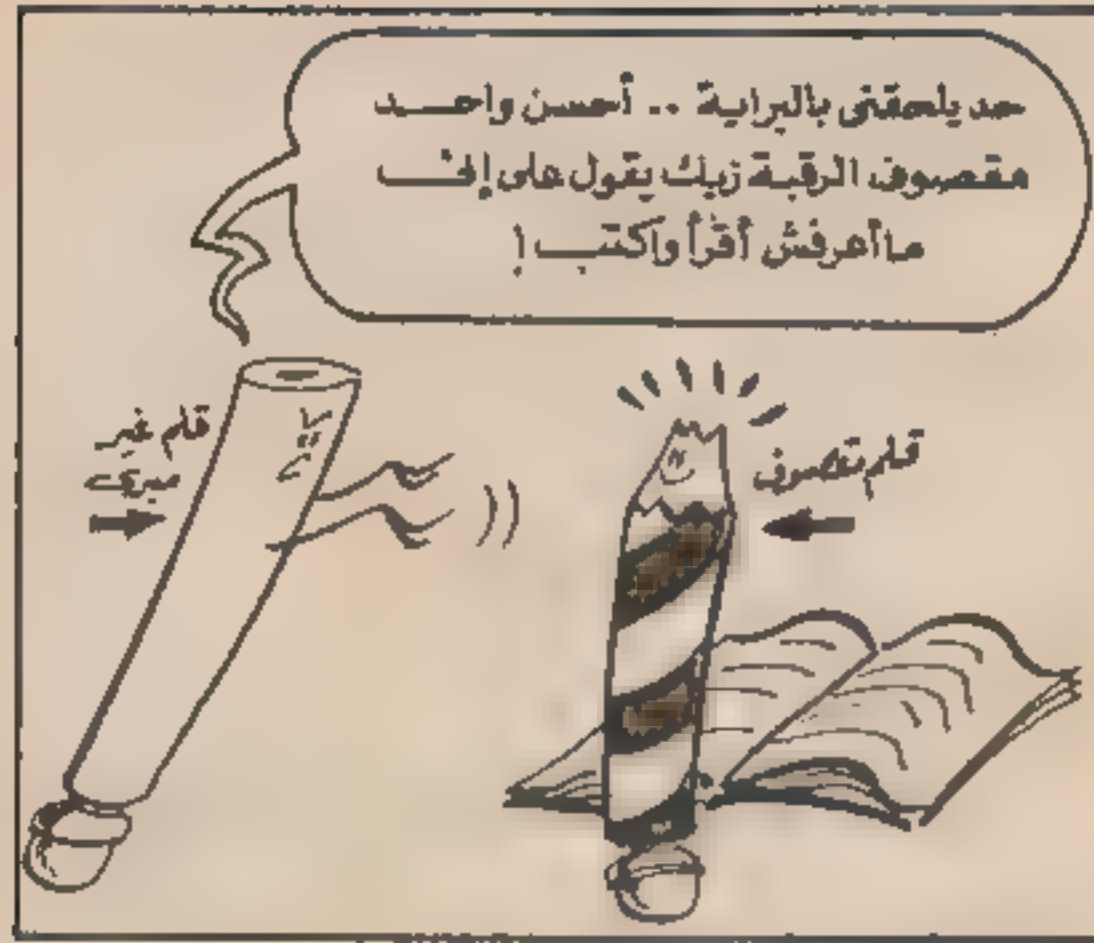 حد يلحقنى بالبراية .. أحسن واحد
مقصوف الرقبة زيك يقول على إنى
ما أعرفش أقرأ وأكتب !
قلم غير
مبرى
قلم مقصوف